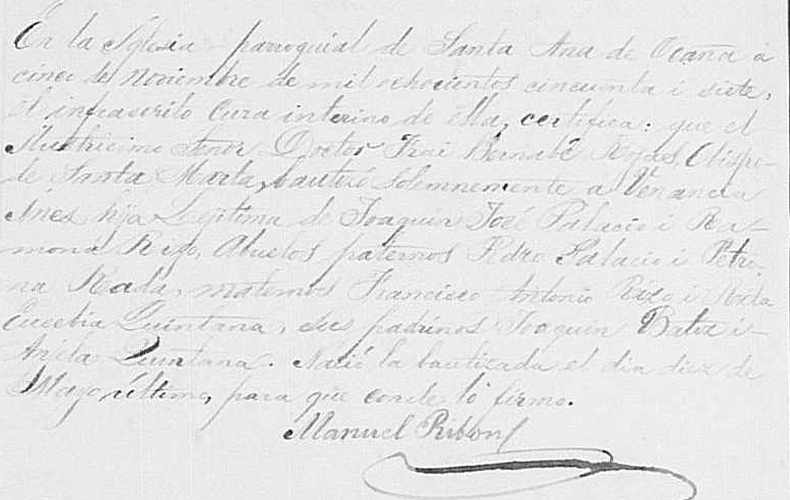 En la Iglesia parroquial de Santa Ana de Ocaña a
cinco de Noviembre de mil ochocientos cincuenta i siete,
el infrascrito Cura interino de ella, certifica: que el
Ilustrisimo Señor Doctor Frai Bernabé Rojas Obispo
de Santa Marta, bautizó solemnemente a Venancia
Inés hija Legitima de Joaquin José Palacio i Ra-
mona Rizo, Abuelos paternos Pedro Palacio i Petro-
na Rada, maternos Francisco Antonio Rizo i
Eusebia Quintana, sus padrinos Joaquin i
Quintana. Nació la bautizada el dia diez de
Mayo último, para que conste lo firmo.
Manuel Ribon